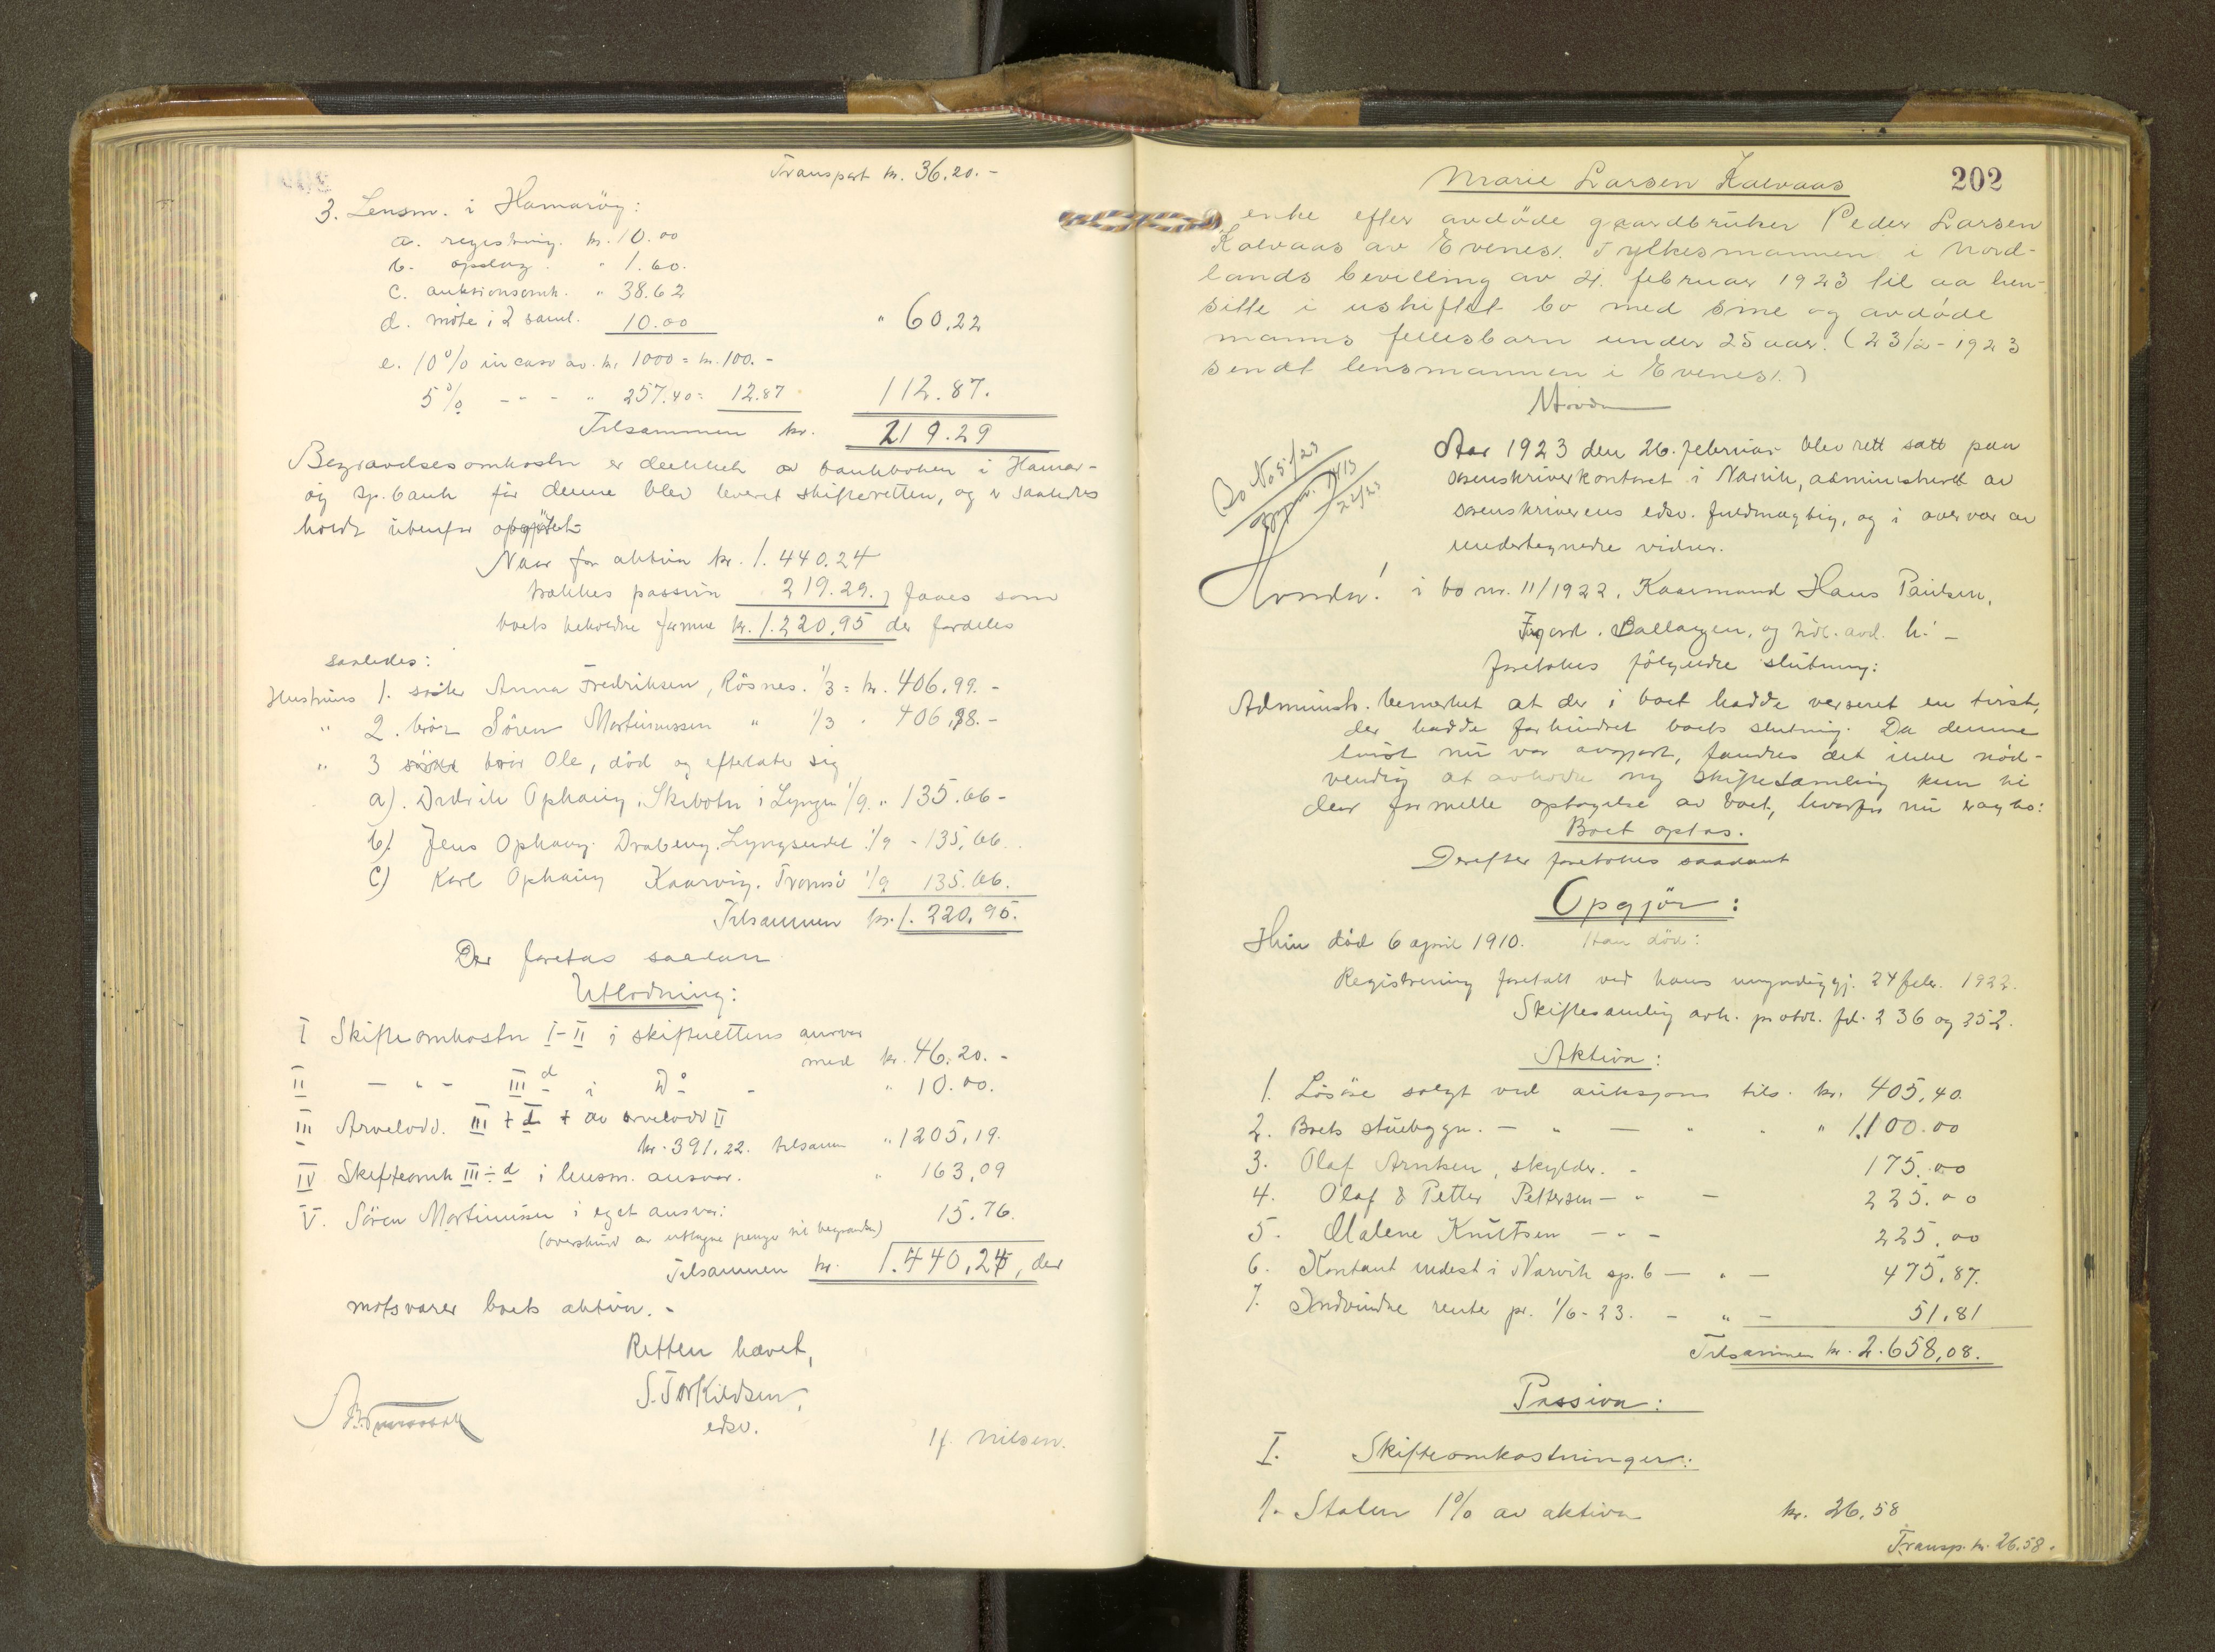 Transport kr. 36.20.-
3. Lensm. i Hamaröy:
a. registring. kr. 10.00
b. opslag. " 1.60.
c. auktionsomk. " 38.62
d. möte i 2 saml. 10.00 " 60.22
e. 10% incaso av. kr. 1000 = kr. 100.-
5% - - - " 257.40 = 12.87 112.87.
Tilsammen kr. 219.29
Begravelsesomkostn er dækket av bankboken i Hamar-
öy sp.bank før denne blev leveret skifteretten, og er saaledes
holdt utenfor opgjöret
Naar fra aktiva kr. 1.440.24
trækkes passiva 219.29., faaes som
boets beholdne formue kr. 1.220,95 der fordeles
saaledes:
Hustruens 1. søster Anna Fredriksen, Rösnes. 1/3 = kr. 406,99.-
" 2. bror Sören Martinussen " 1/3 " 406,98.-
" 3 bror Ole, död og efterlater sig
a). Didrik Ophaug, Skibotn i Lyngen 1/9. " 135.66-
b) Jens Ophaug. Lyngseidet 1/9 - 135,66.
c) Karl Ophaug Kaarvig. Tromsö 1/9 135.66.
Tilsammen kr. 1.220,95.
Der foretas saadan
Utlodning:
I Skifteomkostn I-II i skifterettens ansvar
med kr. 46.20.-
II - " - III d i Do - " 10.00.
III Arvelodd. III + I + av arvelodd II
kr. 391,22. tilsamm " 1205,19.
IV Skifteomk III ÷ d i lensm. ansvar. " 163,09
V. Sören Martinussen i eget ansvar: 15.76.
(overskud av utlagne penge til begravelse)
Tilsammen kr. 1.440,24, der
motsvarer boets aktiva.-
Retten hævet,
S. Torkildsen,
edsv.
H. Nilsen.
202
Marie Larsen Kalvaas
enke efter avdöde gaardbruker Peder Larsen
Kalvaas av Evenes. Fylkesmannen i Nord-
lands bevilling av 4. februar 1923 til aa hen-
sitte i uskiftet bo med sine og avdöde
manns fellesbarn under 25 aar. (23/2-1923
sendt lensmannen i Evenes.)
Bo No 5/23
Aar 1923 den 26. februar blev rett satt paa
sorenskriverkontoret i Narvik, administreret av
sorenskriverens edsv. fuldmægtig, og i overvær av
undertegnede vidner.
i bo nr. 11/1922, Kaarmand Hans Paulsen,
Ballangen, og tidl. avd. h.-
foretokes fölgende slutning:
Administr. bemerket at der i boet hadde verseret en tvist,
der hadde forhindret boets slutning. Da denne
tvist nu var avgjort, fandtes det ikke nöd-
vendig at avholde ny skiftesamling kun til
den formelle optagelse av boet, hvorfor nu
Boet optas.
Derefter foretokes saadant
Opgjör:
Hun död 6 april 1910. Han död:
Registrering foretatt ved hans umyndiggj. 24 febr. 1922.
Skiftesamling avh. protok. fol. 236 og 252.
Aktiva:
1. Lösöre solgt ved auksjons tils. kr. 405,40.
2. Boets stuebygn. - " - " " " 1.100.00
3. Olaf Arntsen, skylder. - 175.00
4. Olaf & Petter Pettersen - " - 225.00
5. Malene Knutsen - " - 225.00
6. Kontant indest i Narvik sp.b - " - 475,87.
7. Indvundne renter pr. 1/6-23. - " - 51,81
Tilsammen kr. 2.658,08.
Passiva:
I. Skifteomkostninger:
1. Staten 1% av aktiva kr. 26,58
Transp. kr. 26.58.